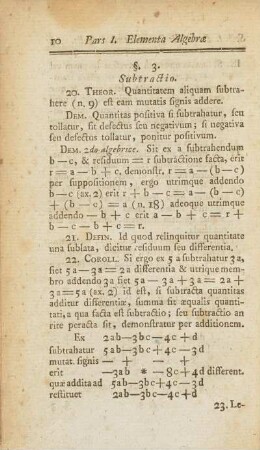 10 Pars I. Elementa Algebræ
§. 3.
Subtractio.
20. THEOR. Quantitatem aliquam subtra-
here (n. 9) est eam mutatis signis addere.
DEM. Quantitas positiva si subtrahatur, seu
tollatur, sit defectus seu negativum; si negativa
seu defectus tollatur, ponitur positivum.
DEM. 2do algebrice. Sit ex a subtrahendum
b—c, & residuum = r subtractione facta, erit
r = a — b + c, demonstr. r = a — (b — c)
per suppositionem, ergo utrimque addendo
b — c (ex. 2) erit r + b — c = a — (b — c)
+ (b — c) = a (n. 18) adeoque utrimque
addendo — b + c erit a — b + c = r + b
— c — b + c = r.
21. DEFIN. Id quod relinquitur quantitate
una sublata, dicitur residuum seu differentia.
22. COROLL. Si ergo ex 5 a subtrahatur 3 a,
fiet 5 a — 3 a = 2 a differentia & utrique mem-
bro addendo 3 a fiet 5 a — 3 a + 3 a = 2 a +
3 a = 5 a (ex. 2) id est, si subtracta quantitas
additur differentiæ, summa sit æqualis quanti-
tati, a qua facta est subtractio; seu subtractio an
rite peracta sit, demonstratur per additionem.
Ex 2ab—3bc—4c+d
subtrahatur 5ab—3bc+4c—3d
mutat. signis — + — +
erit —3ab * —8c+4d different.
quæ addita ad 5ab—3bc+4c—3d
restituet 2ab—3bc—4c+d
23. Le-